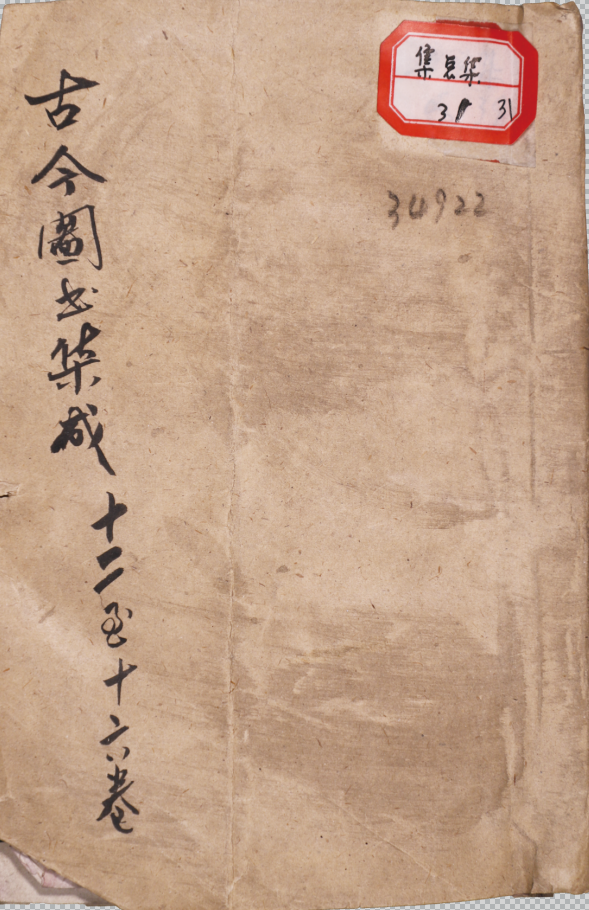 集总集
31 31
34922
古今圖书集成 十二至十六卷